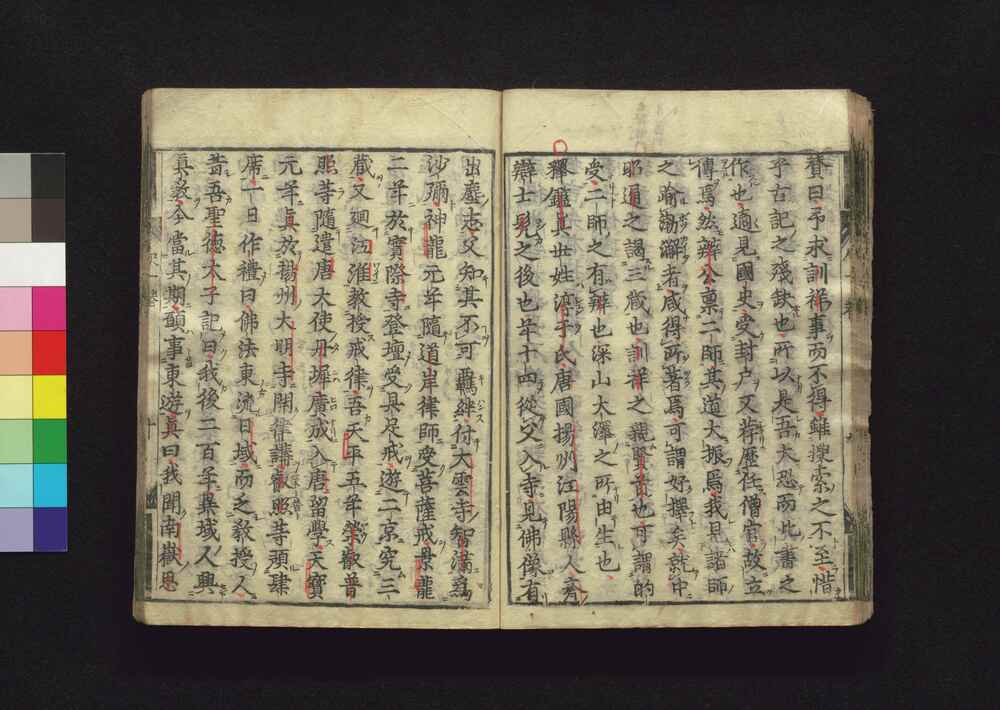 賛曰予求訓祥事而不得雖捜索之不至惜
乎古記之殘缺也所以是吾大恐而此書之
作也適見國史受封戸又荐歴任僧官故立
傳焉然辯公稟二師其道大振焉我見諸師
之瑜瑜者咸得所著焉可謂好撰矣就中
昭通之謁三藏也訓祥之親賢貴也可謂的
受二師之有辯也深山大澤之所由生也
釋鑑眞世姓淳于氏唐國揚州江陽縣人齊
辯士髡之後也年十四從父入寺見佛像有
出塵志父知其不可羈絆付大雲寺智滿爲
沙彌神龍元年隨道岸律師受菩薩戒景龍
二年於實際寺登壇受具足戒遊二京究三
藏又廻江淮教授戒律吾天平五年榮叡普
照等隨遣唐大使丹墀廣成入唐留學天寶
元年眞於揚州大明寺開律講叡照等預肆
席一日作禮曰佛法東流日域而乏教授人
昔吾聖德太子記曰我後二百年異域人興
眞教今當其期願事東遊眞曰我聞南嶽思